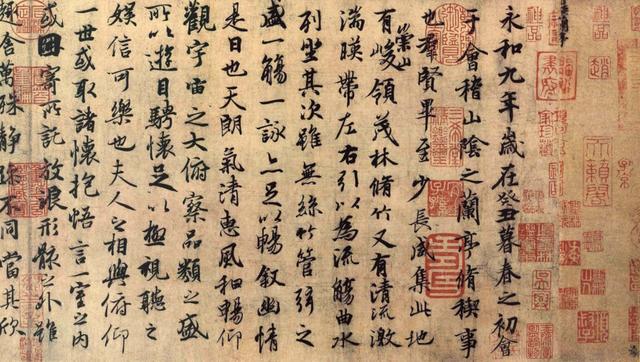 永和九年歲在癸丑暮春之初會
于會稽山陰之蘭亭脩禊事
也羣賢畢至少長咸集此地
有崇山峻領茂林脩竹又有清流激
湍暎帶左右引以為流觴曲水
列坐其次雖無絲竹管弦之
盛一觴一詠亦足以暢叙幽情
是日也天朗氣清惠風和暢仰
觀宇宙之大俯察品類之盛
所以遊目騁懷足以極視聽之
娛信可樂也夫人之相與俯仰
一世或取諸懷抱悟言一室之內
或因寄所託放浪形骸之外雖
趣舍萬殊静躁不同當其欣
天籟閣